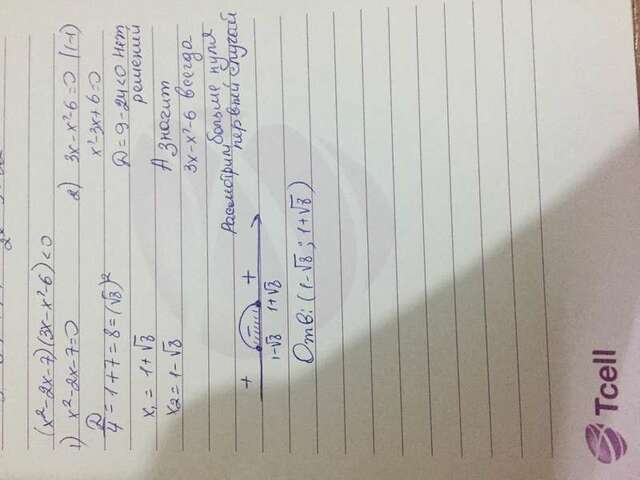 (x²-2x-7)(3x-x²-6)<0
1) x²-2x-7=0
D/4 = 1+7=8=(√8)²
x₁ = 1+√8
x₂ = 1-√8
2) 3x-x²-6=0 |(-1)
x²-3x+6=0
D=9-24<0 Нет
решений
А значит
3x-x²-6 всегда
больше нуля
Расмотрим первый случай
+ - +
1-√8 1+√8
Отв: (1-√8 ; 1+√8)
Tcell